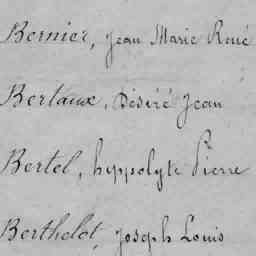 Bernier, Jean Marie René
Bertaux, Désiré Jean
Bertel, hippolyte Pierre
Berthelot, Joseph Louis